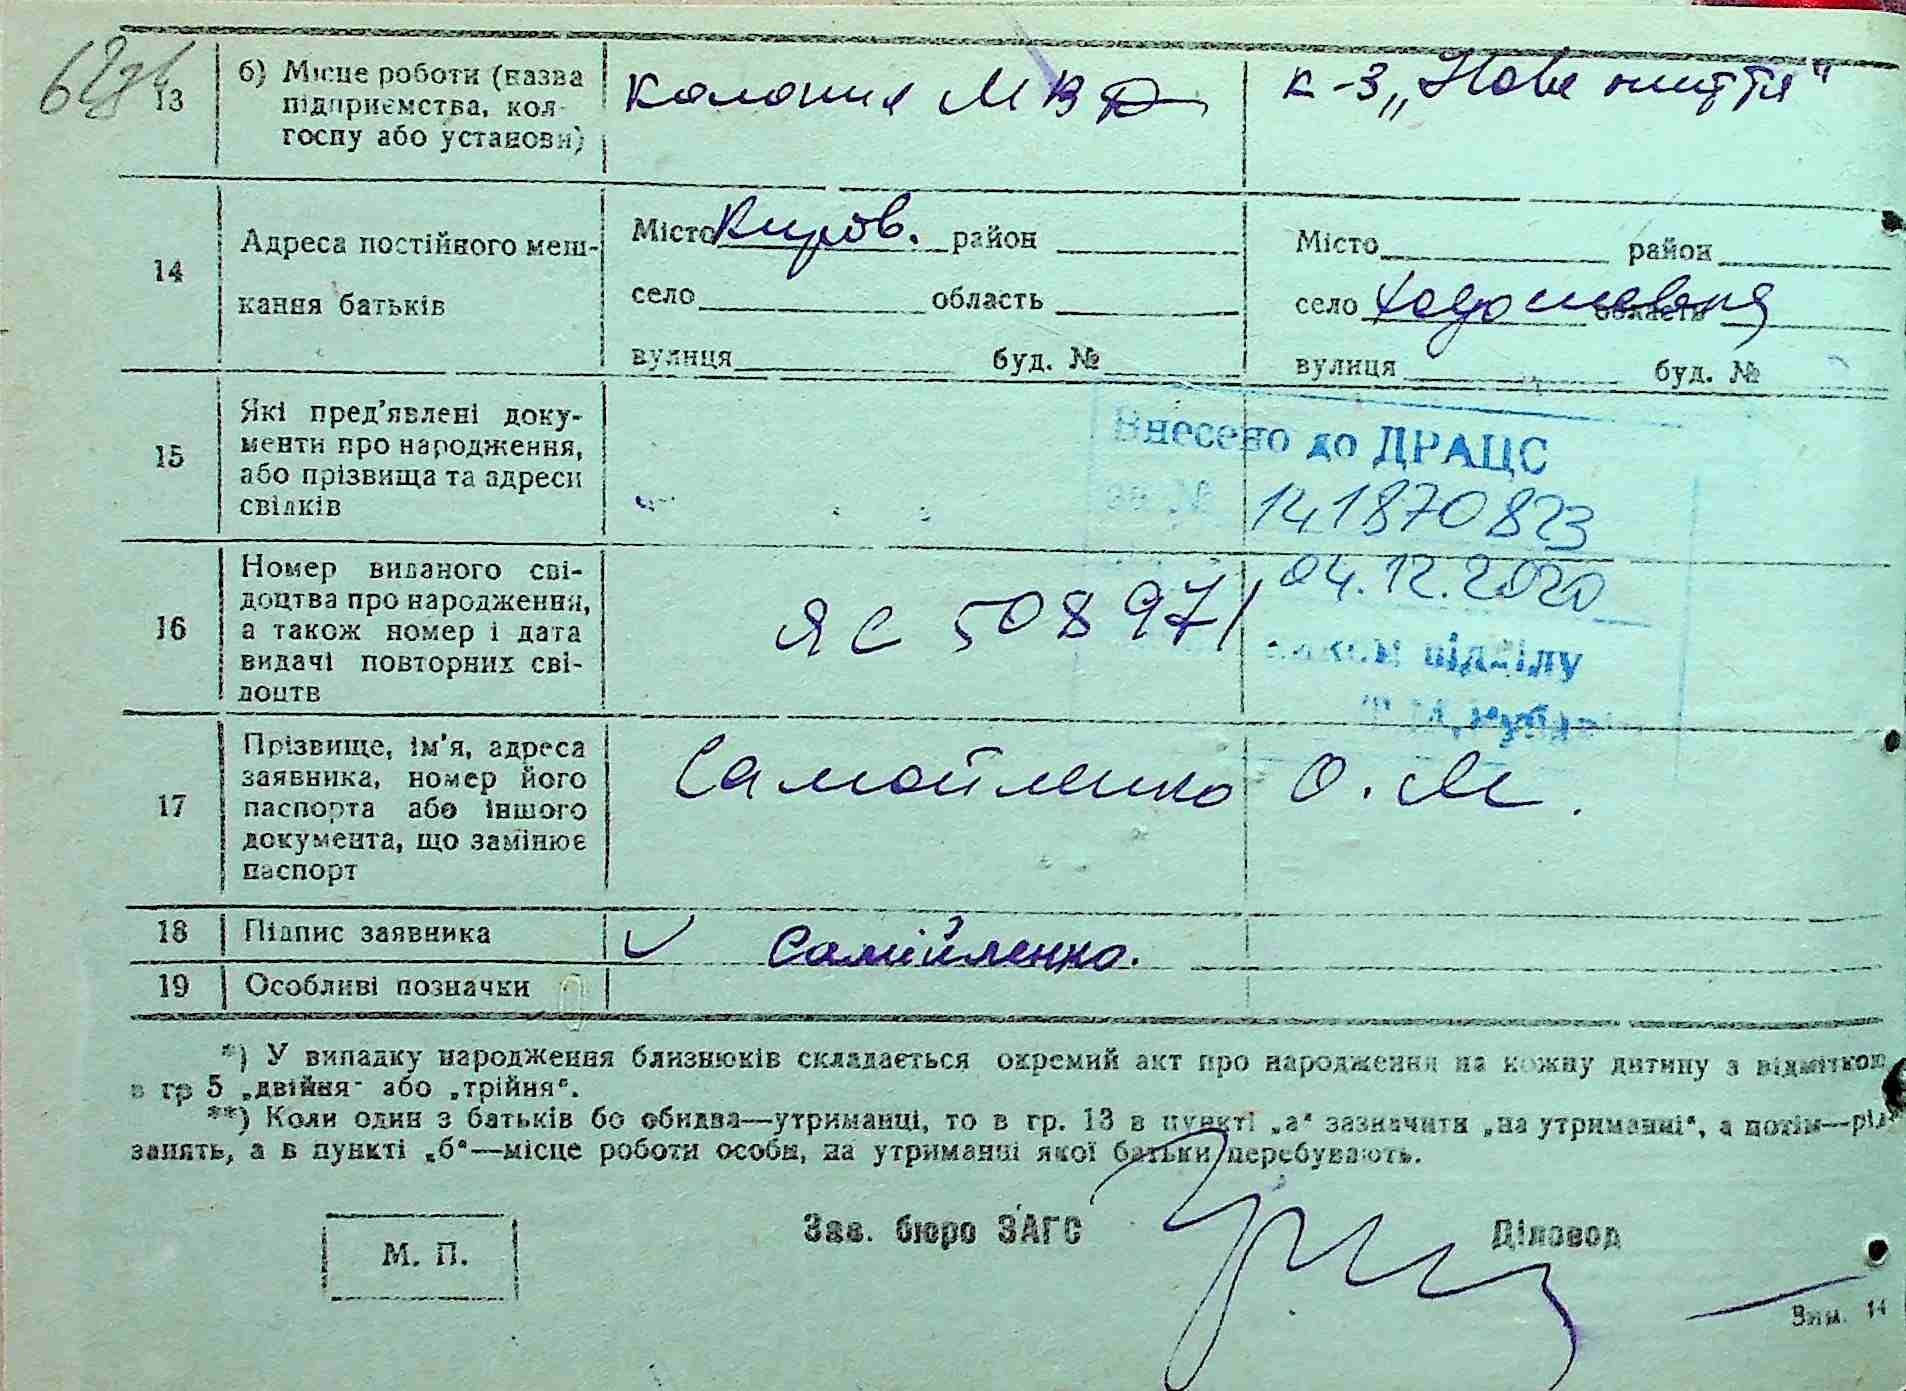 13 б) Місце роботи (назва підприємства, колгоспу або установи) колония МВД к-з „Нове життя"
14 Адреса постійного мешкання батьків
Місто Киров. район
село область
вулиця буд. №
Місто район
село область
вулиця буд. №
15 Які пред'явлені документи про народження, або прізвища та адреси свідків
Внесено до ДРАЦС
141870823
04.12.2020
відділу
16 Номер виданого свідоцтва про народження, а також номер і дата видачі повторних свідоцтв
ЯС 508971
17 Прізвище, ім'я, адреса заявника, номер його паспорта або іншого документа, що замінює паспорт
Самойленко О. М.
18 Підпис заявника Самійленко.
19 Особливі позначки
*) У випадку народження близнюків складається окремий акт про народження на кожну дитину з відміткою
в гр 5 „двійня" або „трійня".
**) Коли один з батьків бо обидва—утриманці, то в гр. 13 в пункті „а" зазначити „на утриманні", а потім—рід
занять, а в пункті „б"—місце роботи особи, на утриманні якої батьки перебувають.
М. П.
Зав. бюро ЗАГС
Діловод
Зим. 14